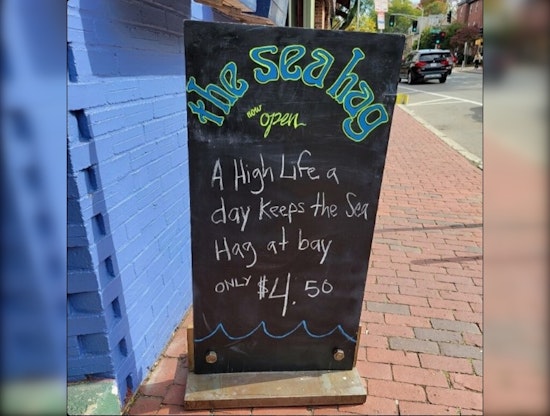 the sea hag
now
open
A High Life a
day keeps the Sea
Hag at bay
ONLY $4.50